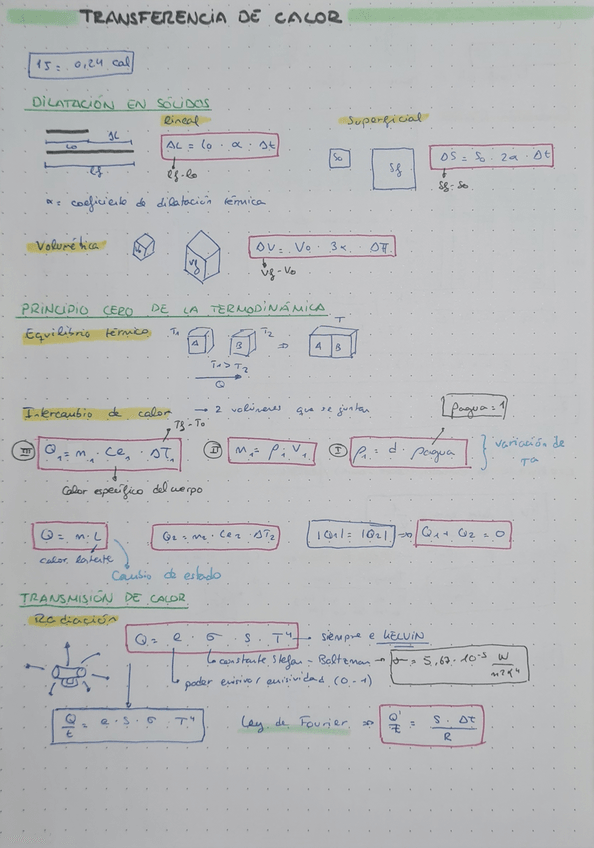 TRANSFERENCIA DE CALOR
1J = 0,24 cal
DILATACIÓN EN SÓLIDOS
lineal
Superficial
ΔL
l0
lf
ΔL = l0 · α · Δt
lf-l0
S0
Sf
ΔS = S0 · 2α · Δt
Sf-S0
α = coeficiente de dilatación térmica
Volumétrica
V0
Vf
ΔV = V0 · 3α · ΔT
Vf-V0
PRINCIPIO CERO DE LA TERMODINÁMICA
Equilibrio térmico
T1
A
B
T2
⇒
T
A B
T1 > T2
Q
Intercambio de calor → 2 volúmenes que se juntan
ρagua = 1
Tf - T0
III Q1 = m1 · Ce1 · ΔT1
II m1 = ρ1 · V1
I ρ1 = d · ρagua
variación de Tª
Calor específico del cuerpo
Q = m · L
Q2 = m2 · Ce2 · ΔT2
|Q1| = |Q2| ⇒ Q1 + Q2 = 0
calor latente
Cambio de estado
TRANSMISIÓN DE CALOR
Radiación
Q = e · σ · S · T⁴ → siempre e KELVIN
constante Stefan - Boltzman → σ = 5,67 · 10⁻⁵ W/m²K⁴
poder emisivo/emisividad (0-1)
Q/t = e · S · σ · T⁴
Ley de Fourier ⇒ Q'/t = S · Δt/R